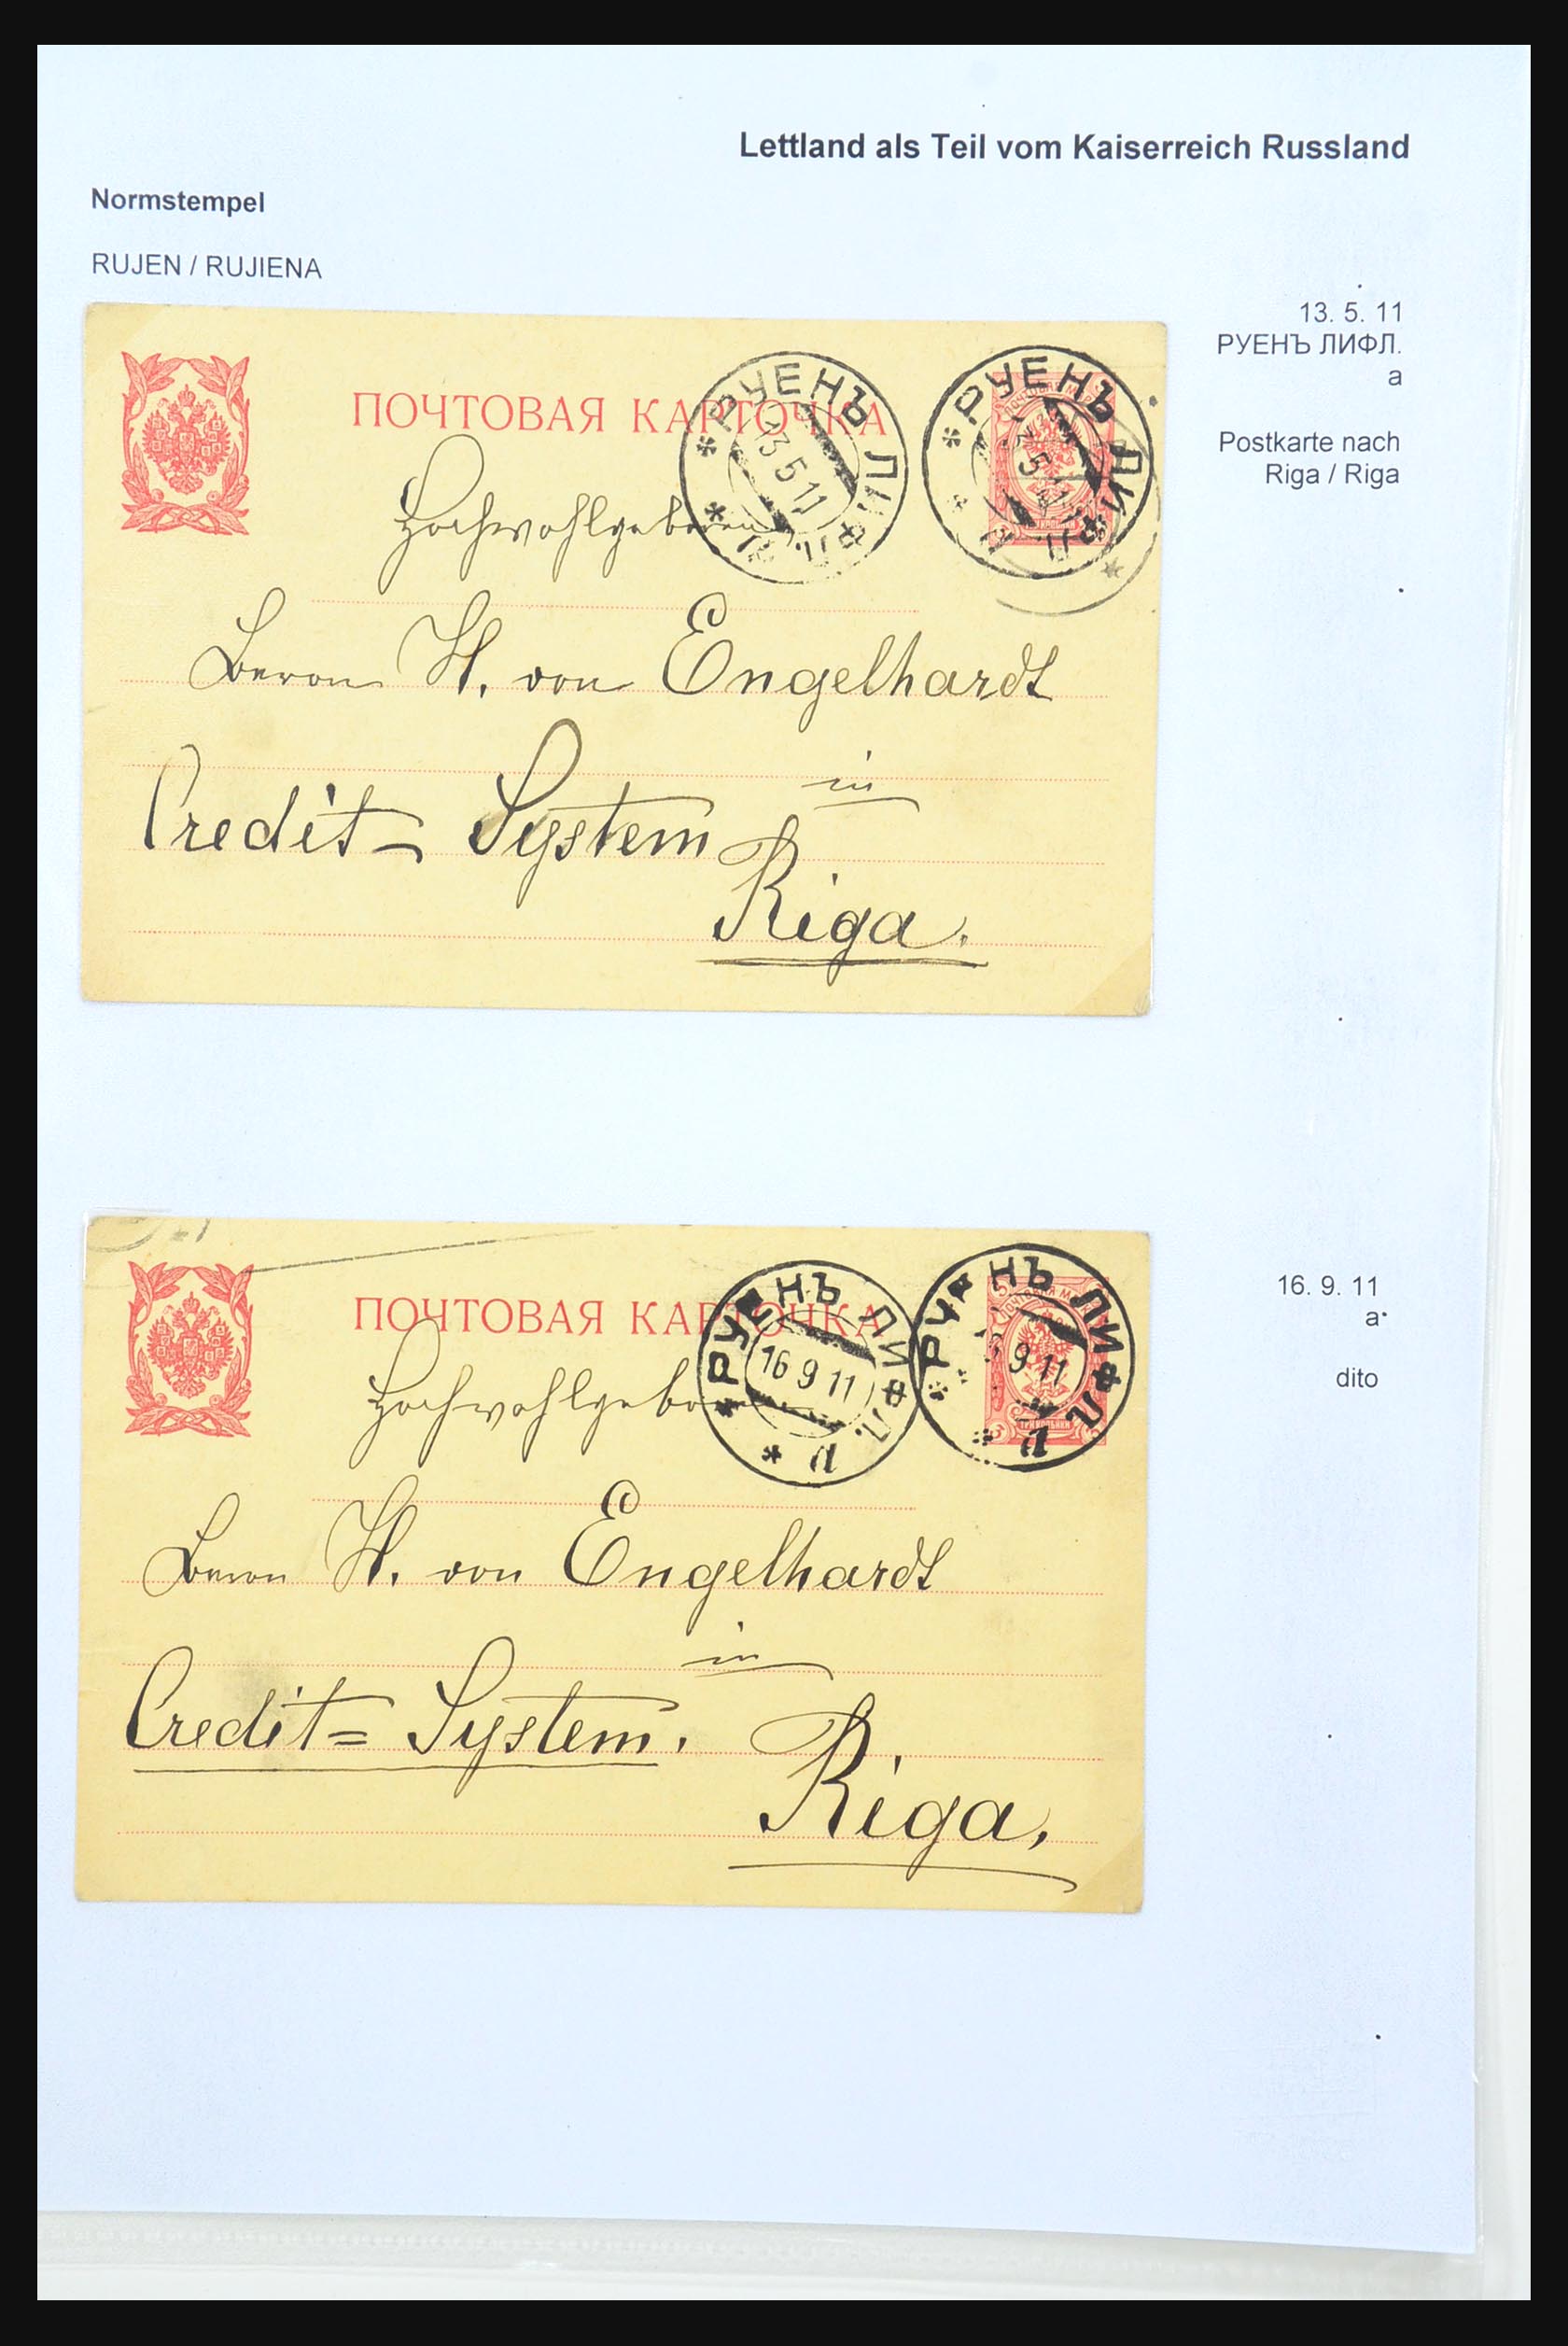 Lettland als Teil vom Kaiserreich Russland
Normstempel
RUJEN / RUJIENA
13. 5. 11
РУЕНЪ ЛИФЛ.
a
Postkarte nach
Riga / Riga
ПОЧТОВАЯ КАРТОЧКА
РУЕНЪ ЛИФЛ. а
13 5 11
РУЕНЪ ЛИФЛ. а
13 5 11
Hochwohlgeboren
Baron H. von Engelhardt
in
Credit- System
Riga.
16. 9. 11
a
dito
ПОЧТОВАЯ КАРТОЧКА
РУЕНЪ ЛИФЛ. а
16 9 11
РУЕНЪ ЛИФЛ. а
9 11
Hochwohlgeboren
Baron H. von Engelhardt
in
Credit= System.
Riga,